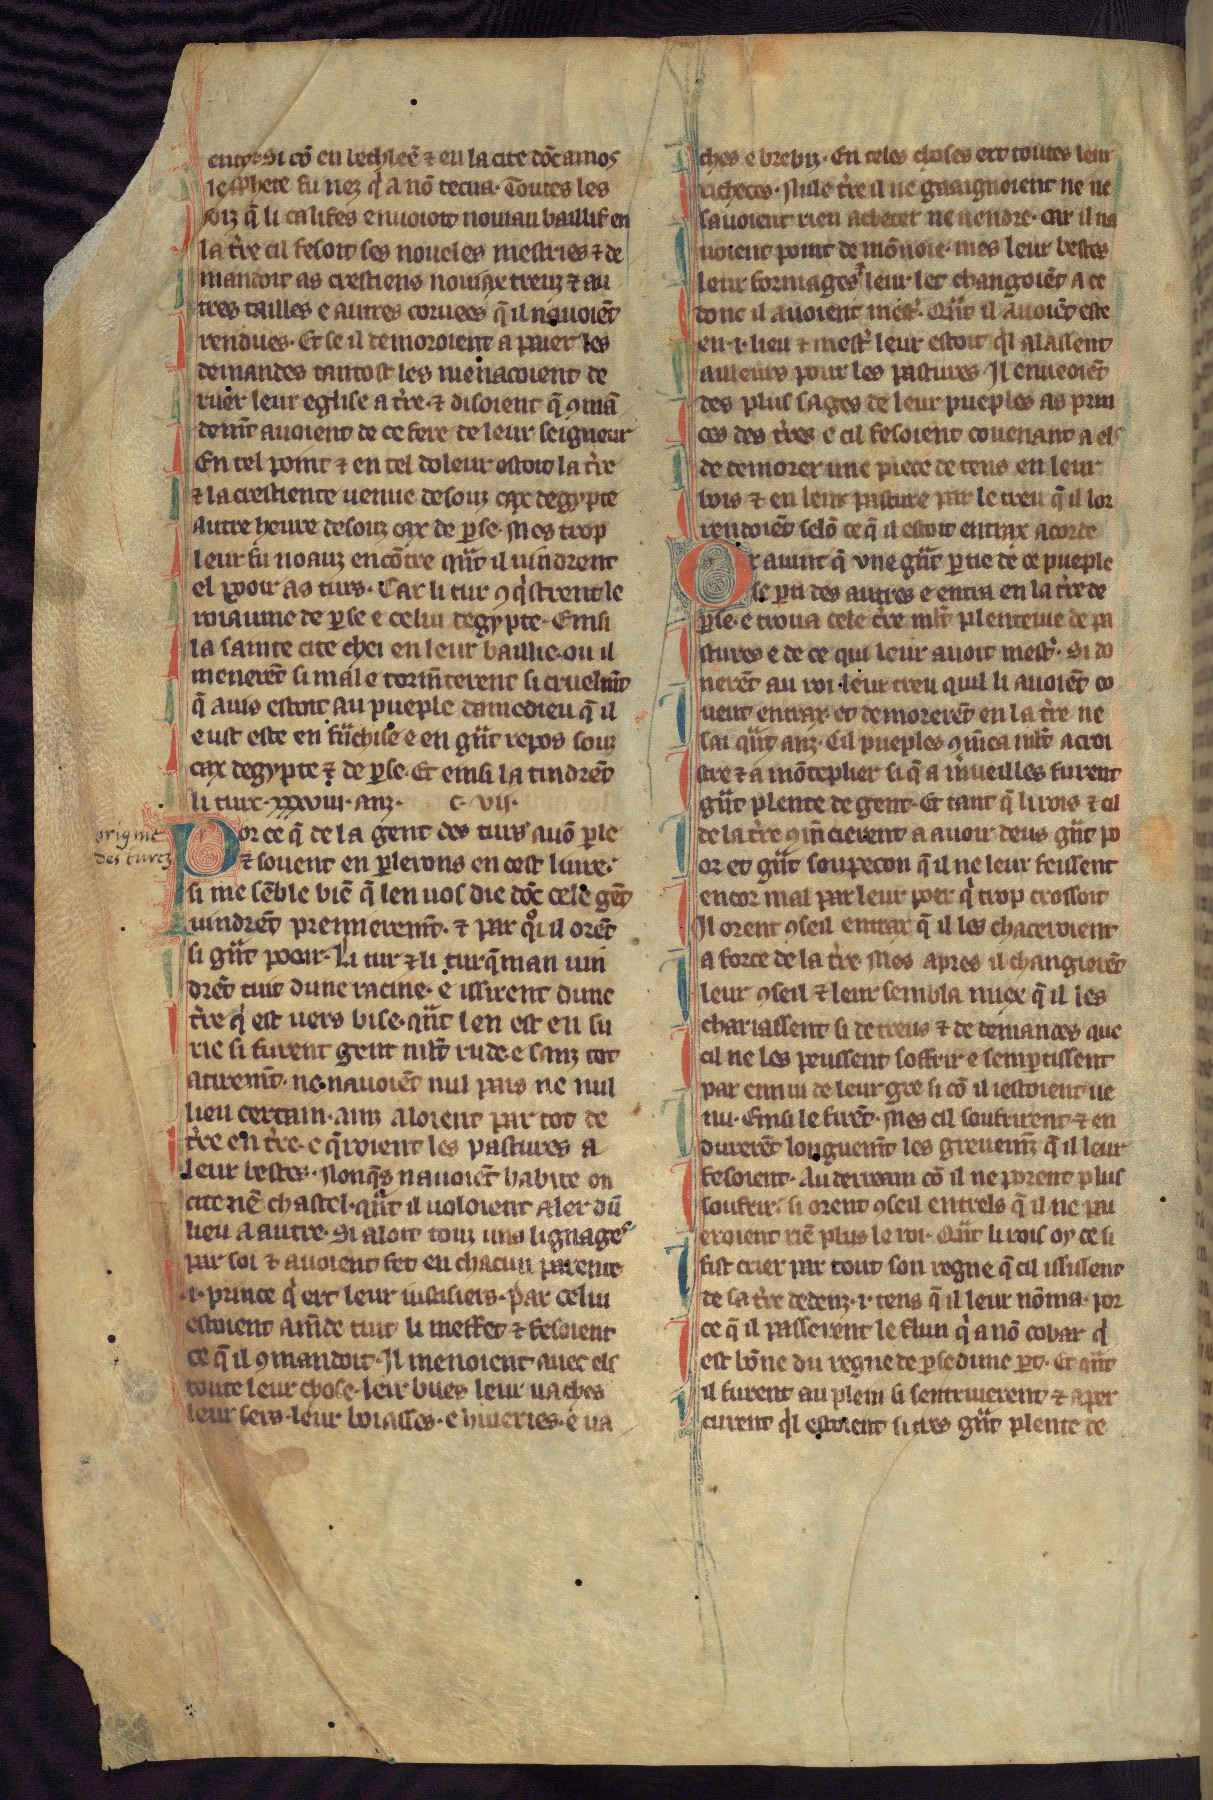 enty. Si cō en bechleē ⁊ en la cite dōt amos
le ꝓphete fu nez q̇ a nō tecua. Toutes les
foiz q̄ li califes envoioit nouiau baillif en
la tr̄e cil fesoit ses noueles mestries ⁊ de
mandoit as crestiens nouiax treuz ⁊ au
tres tailles e autres coruees q̄ il nauoiēt
rendues. Et se il demoroient a paier les
demandes tantost les menacoient de
ruer leur eglise a tr̄e. ⁊ disoient q̄ ꝯmā
demt̄ auoient de ce fere de leur seigneur
En tel point ⁊ en tel doleur estoit la tr̄e
⁊ la crestiente uenue desouz cax degypte
autre heure desouz cax de ꝑse. Mes trop
leur fu noauz encōtre qn̄t il uindrent
el pooir as turs. Car li tur ꝯq̇strent le
roiaume de ꝑse e celui degypte. Einsi
la sainte cite chei en leur baillie. ou il
menerēt si mal e torm̄terent si cruelmt̄
q̄ auis estoit au pueple damedieu q̄ il
eust este en frn̄chise e en gn̄t repos souz
cax degypte ⁊ de ꝑse. Et einsi la tindrēt
li turc .xxxviii. anz. C. vii.
origine
des turcz
Por ce q̄ de la gent des turs auō ꝑle
⁊ souent en ꝑlerons en cest liure.
si me sēble biē q̄ len uos die dōt cele gēt
uindrēt premierēmt. ⁊ par quoi il orēt
si gn̄t pooir. Li tur ⁊ li turq̄man uin
drēt tuit dune racine. e issirent dune
tr̄e q̇ est uers bise. qn̄t len est en su
rie si furent gent mlt̄ rude e sanz tot
atiremt̄. ne nauoiēt nul pais ne nul
lieu certain. ainz aloient par tot de
tr̄e en tr̄e. e q̄roient les pastures a
leur bestes. Nonq̄s nauoiēt habite en
cite nē chastel. qn̄t il uoloient aler dū
lieu a autre. Si aloit touz uns lignages
par soi ⁊ auoient fet en chacun parente
.i. prince q̇ ert leur iustisiers. Par celui
estoient amēde tuit li meffet ⁊ fesoient
ce q̄ il ꝯmandoit. Il menoient auec els
toute leur chose. leur bues leur uaches
leur sers. leur boiasses. e hiueries. e ua
ches e brebiz. En celes choses ert toutes leur
richeces. Nule tr̄e il ne gaaignoient ne ne
sauoient rien acheter ne uendre. car il na
uoient point de mōnoie. mes leur bestes
leur formages ⁊ leur let changoiēt a ce
donc il auoient mest̄. Qn̄t il auoiēt este
en .i. lieu ⁊ mest̄ leur estoit ql̇ alassent
ailleurs pour les pastures. Il enueoiēt
des plus sages de leur pueples as prin
ces des tr̄es e cil fesoient couenant a els
de demorer une piece de tens en leur
bois ⁊ en leur pasture par le treu q̄ il lor
rendoiēt selō ce q̄ il estoit entrax acorde
Or auint q̄ vne gn̄t ꝑtie de ce pueple
se ꝑti des autres e entra en la tr̄e de
ꝑse. e troua cele tr̄e mlt̄ plenteiue de pa
stures e de ce qui leur auoit mest̄. Si do
nerēt au roi leur treu quil li auoiēt co
uent entrax. et demorerēt en la tr̄e ne
sai qn̄t anz. Cil pueples ꝯmēca mlt̄ a croi
stre ⁊ a mōteplier si q̄ a mūeilles furent
gn̄t plente de gent. Et tant q̄ li rois ⁊ cil
de la tr̄e ꝯmēcierent a auoir deus gn̄t po
or et gn̄t soupecon q̄ il ne leur feissent
encor mal par leur poer q̇ trop croissoit
Il orent ꝯseil entrax q̄ il les chaceroient
a force de la tr̄e. Mes apres il changierēt
leur ꝯseil ⁊ leur sembla miex q̄ il les
chariassent si de treus ⁊ de demandes que
cil ne les peussent soffrir e sempartissent
par ennui de leur gre si cō il iestoient ue
nu. Einsi le firēt. Mes cil soufrirent ⁊ en
durerēt longuemt̄ les greuemz̄ q̄ il leur
fesoient. Au derreain cō il ne porent plus
soufrir. si orent ꝯseil entrels q̄ il ne pai
eroient riē plus le roi. Qn̄t li rois oy ce si
fist crier par tout son regne q̄ cil ississent
de sa tr̄e dedenz .i. tens q̄ il leur nōma. por
ce q̄ il passerent le flun q̇ a nō cobar q̇
est bōne du regne de ꝑse dune ꝑt. Et qn̄t
il furent au plein si sentruirent ⁊ aper
curent ql̇ estoient si tres gn̄t plente de